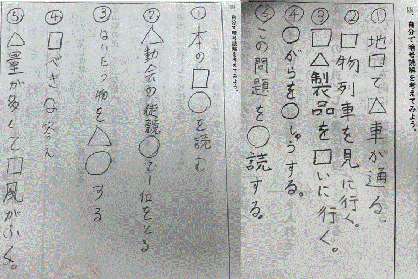 自分で暗号読解を考えてみよう。
①地□で△車が通る。
②□物列車を見に行く。
③□△製品を□いに行く。
④○がらを○しゅうする。
⑤この問題を○読する。
自分で暗号読解を考えてみよう。
①本の□○を読む
②△動会の徒競○で一位をとる
③はいたつ物を△○する
④□べき
⑤△量が多くて□風がふく。